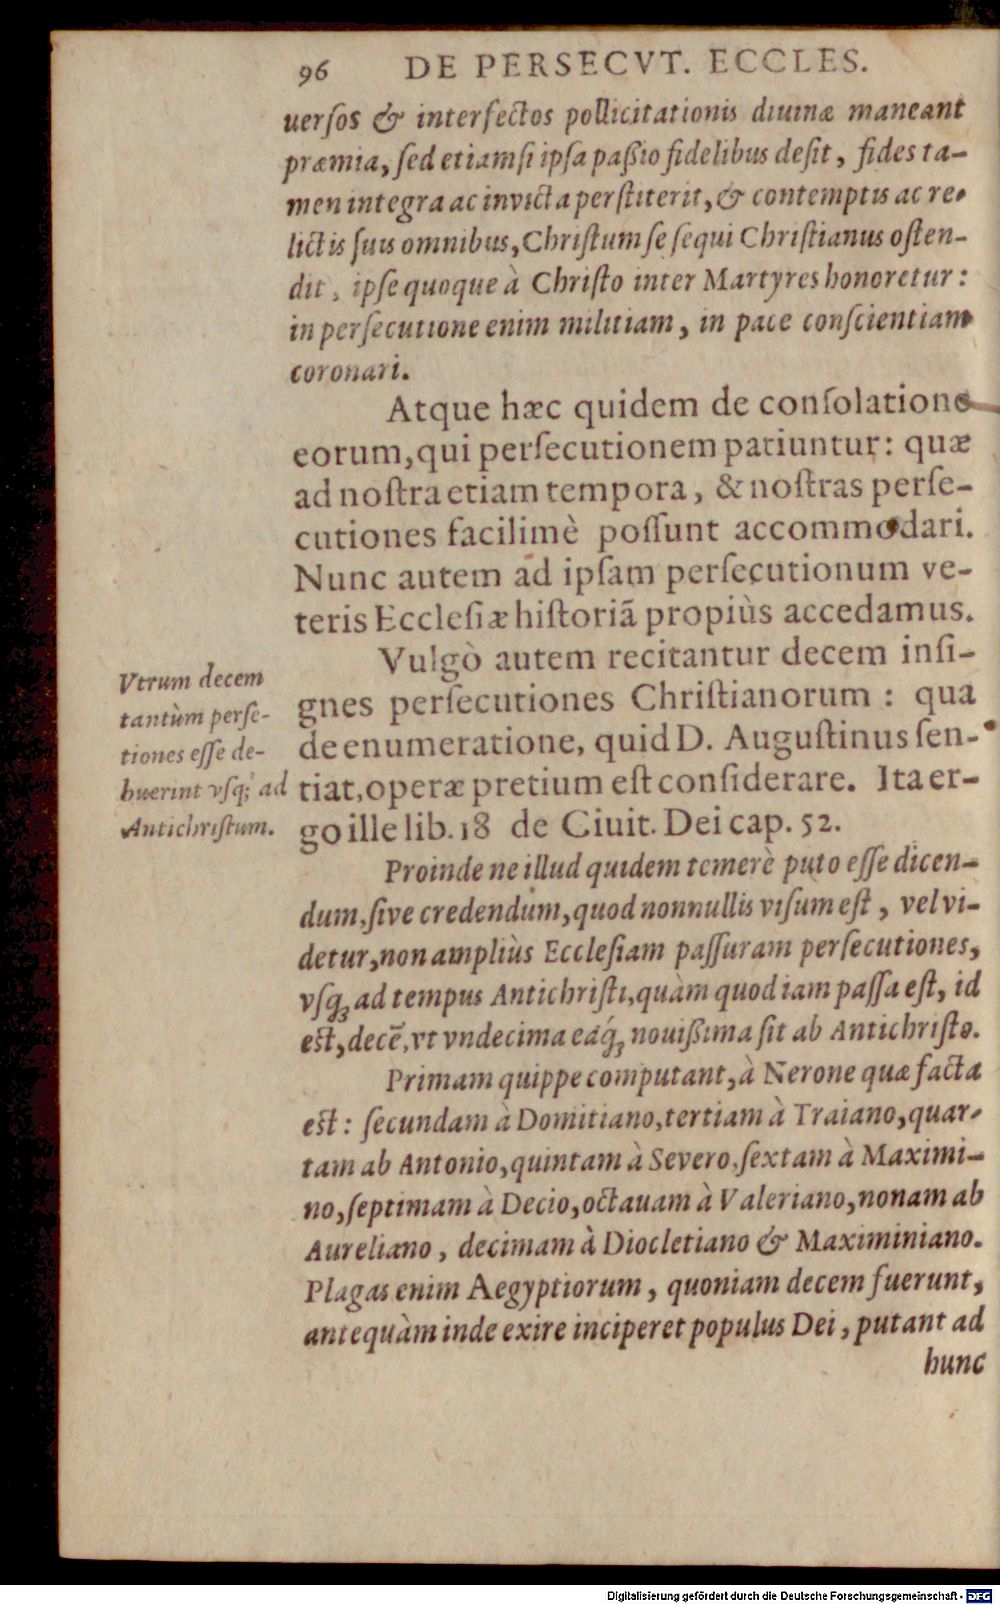 96 DE PERSECVT. ECCLES.
uerſos & interfectos pollicitationis diuinæ maneant
præmia, ſed etiamſi ipſa paßio fidelibus deſit, fides ta-
men integra ac invicta perſtiterit, & contemptis ac re-
lictis ſuis omnibus, Chriſtum ſe ſequi Chriſtianus oſten-
dit, ipſe quoque à Chriſto inter Martyres honoretur:
in perſecutione enim militiam, in pace conſcientiam
coronari.
Atque hæc quidem de conſolatione
eorum, qui perſecutionem patiuntur: quæ
ad noſtra etiam tempora, & noſtras perſe-
cutiones facilimè poſſunt accommodari.
Nunc autem ad ipſam perſecutionum ve-
teris Eccleſiæ hiſtoriã propiùs accedamus.
Vulgò autem recitantur decem inſi-
gnes perſecutiones Chriſtianorum: qua
de enumeratione, quid D. Auguſtinus ſen-
tiat, operæ pretium eſt conſiderare. Ita er-
go ille lib. 18 de Ciuit. Dei cap. 52.
Vtrum decem
tantùm perſe-
tiones eſſe de-
buerint vſq; ad
Antichriſtum.
Proinde ne illud quidem temerè puto eſſe dicen-
dum, ſive credendum, quod nonnullis viſum eſt, vel vi-
detur, non ampliùs Eccleſiam paſſuram perſecutiones,
vſq; ad tempus Antichriſti, quàm quod iam paſſa eſt, id
eſt, decẽ, vt vndecima eaq́; nouißima ſit ab Antichriſto.
Primam quippe computant, à Nerone quæ facta
eſt: ſecundam à Domitiano, tertiam à Traiano, quar-
tam ab Antonio, quintam à Severo, ſextam à Maximi-
no, ſeptimam à Decio, octauam à Valeriano, nonam ab
Aureliano, decimam à Diocletiano & Maximiniano.
Plagas enim Aegyptiorum, quoniam decem fuerunt,
antequàm inde exire inciperet populus Dei, putant ad
hunc
Digitalisierung gefördert durch die Deutsche Forschungsgemeinschaft - DFG